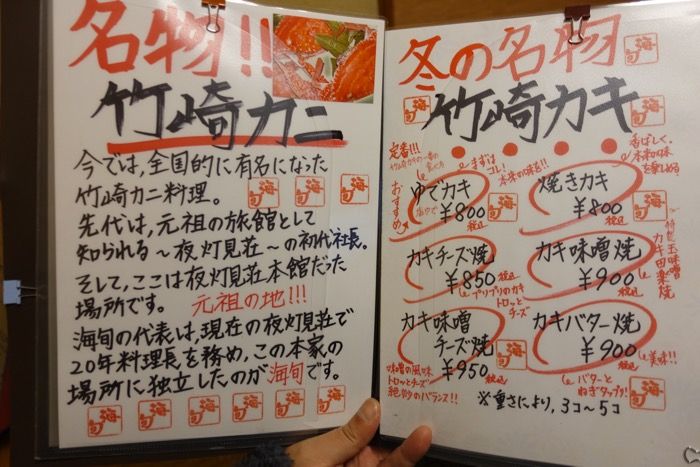 名物!!
竹崎カニ
今では、全国的に有名になった
竹崎カニ料理。
先代は、元祖の旅館として
知られる〜夜灯見荘〜の初代社長。
そして、ここは夜灯見荘本館だった
場所です。 元祖の地!!!
海旬の代表は、現在の夜灯見荘で
20年料理長を務め、この本家の
場所に独立したのが海旬です。
冬の名物
竹崎カキ
定番!!!
おすすめ
まずは
コレ!
本来の味を!!
ゆでカキ
¥800 税込
香ばしく、
本来の味
を楽しめる
焼きカキ
¥800 税込
カキチーズ焼
¥850 税込
プリプリのカキ
トロッとチーズ
カキ味噌焼
¥900 税込
カキ味噌
チーズ焼
¥950 税込
味噌の風味
トロッとチーズ
絶妙のバランス!!
カキバター焼
¥900 税込
美味!!
バターと
ねぎタップリ!
※重さにより、3コ〜5コ
海旬